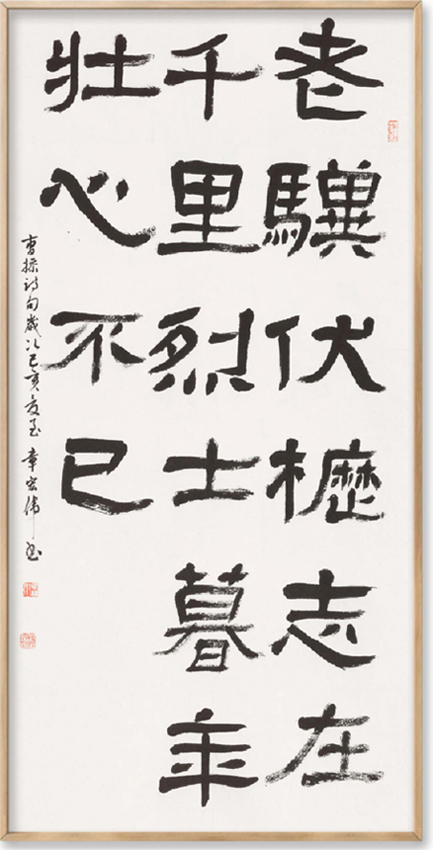 老驥伏櫪志在
千里烈士暮年
壯心不已
曹操詩句歲次己亥夏至章宏偉書